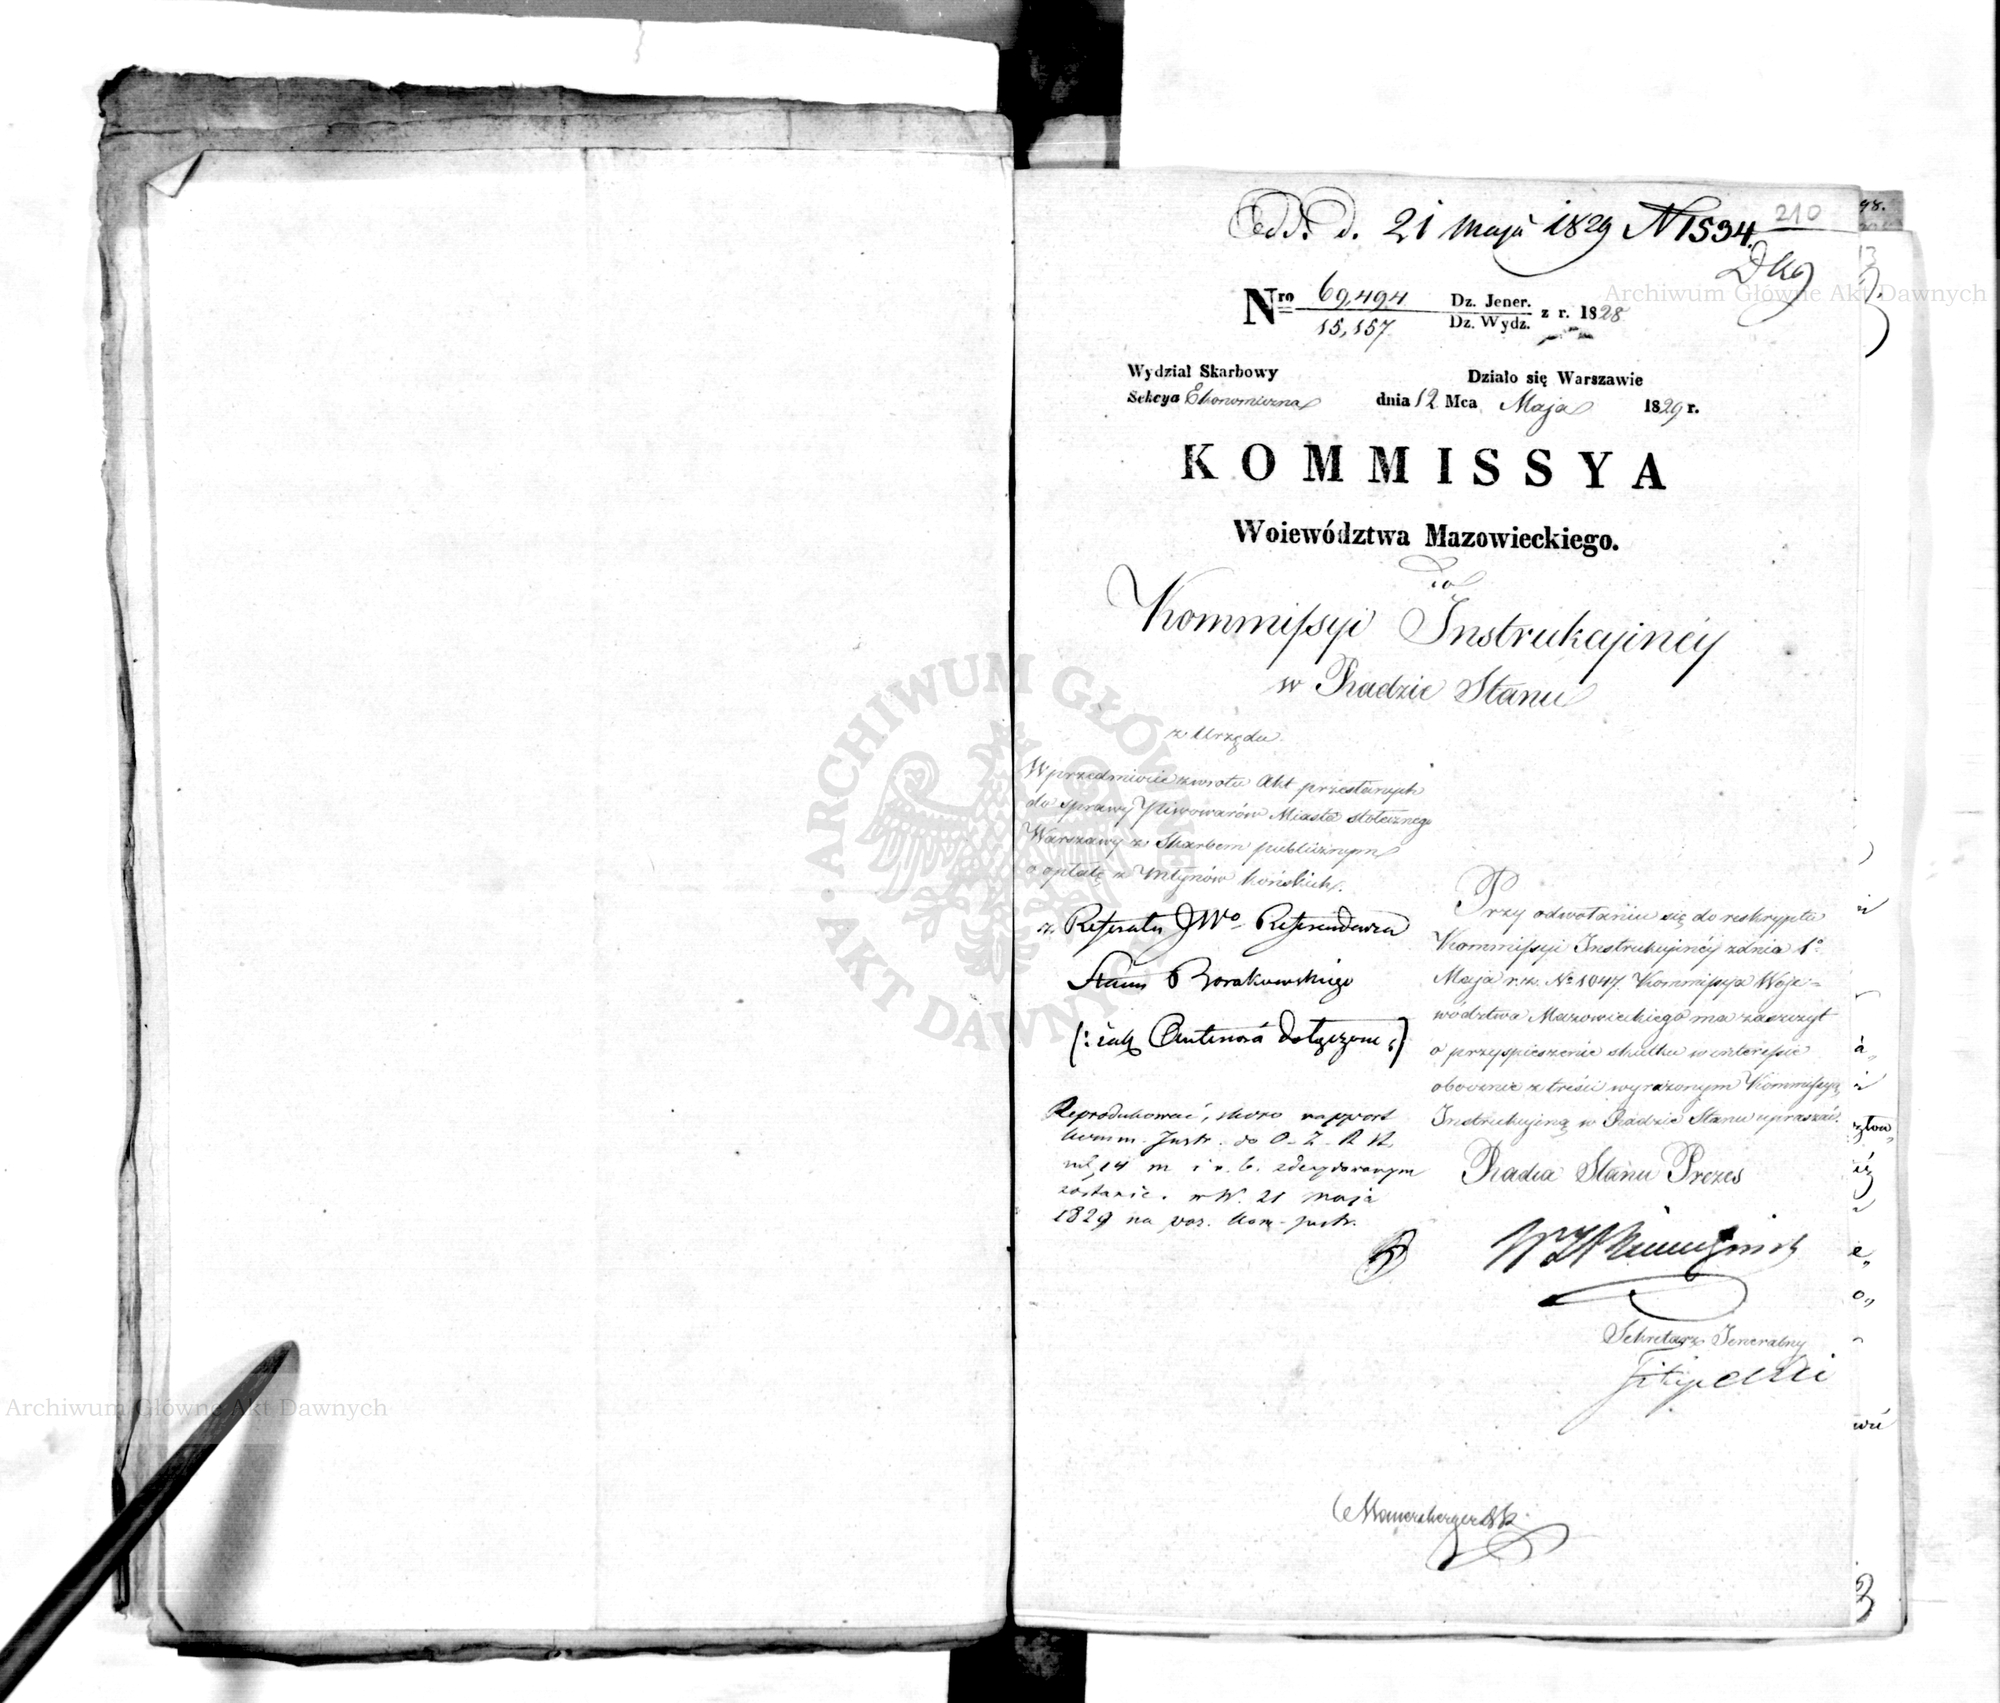 Odd. d. 21 Maja 1829 N 1594.
210
Nro 69,494 Dz. Jener. z r. 1828
15,157 Dz. Wydz.
Wydział Skarbowy
Sekcya Ekonomiczna
Działo się Warszawie
dnia 12 Mca Maja 1829 r.
KOMMISSYA
Woiewództwa Mazowieckiego.
do
Kommissyi Instrukcyinéy
w Radzie Stanu
z Urzędu
W przedmiocie zwrotu Akt przesłanych
do sprawy Piwowarów Miasta stołecznego
Warszawy z Skarbem publicznym
o opłatę z Młynów końskich.
z Referatu JWo Referendarza
Stanu Borakowskiego
(: Dołączone :)
Reprodukować, skoro rapport
Komm. Instr. do
zadecydowanym
zostanie. w W. 21 maja
1829 na pos. Kom. Instr.
Przy odwołaniu się do reskryptu
Kommissyi Instrukcyinéy z dnia 1o
Maja r. b. No 1047. Kommissya Woje-
wództwa Mazowieckiego ma zaszczyt
o przyspieszenie skutku w interessie
obocznie z treści wyrażonym Kommissyą
Instrukcyiną w Radzie Stanu upraszać.
Radca Stanu Prezes
Sekretarz Jeneralny
Filipecki
Archiwum Główne Akt Dawnych
Archiwum Główne Akt Dawnych
ARCHIWUM GŁÓWNE AKT DAWNYCH